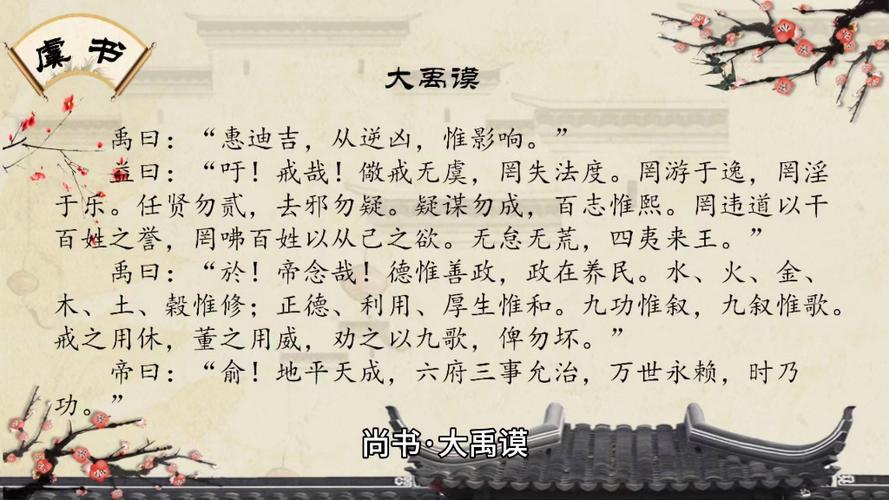 虞书
大禹谟
禹曰：“惠迪吉，从逆凶，惟影响。”
益曰：“吁！戒哉！儆戒无虞，罔失法度。罔游于逸，罔淫
于乐。任贤勿贰，去邪勿疑。疑谋勿成，百志惟熙。罔违道以干
百姓之誉，罔咈百姓以从己之欲。无怠无荒，四夷来王。”
禹曰：“於！帝念哉！德惟善政，政在养民。水、火、金、
木、土、榖惟修；正德、利用、厚生惟和。九功惟叙，九叙惟歌。
戒之用休，董之用威，劝之以九歌，俾勿坏。”
帝曰：“俞！地平天成，六府三事允治，万世永赖，时乃
功。”
尚书·大禹谟